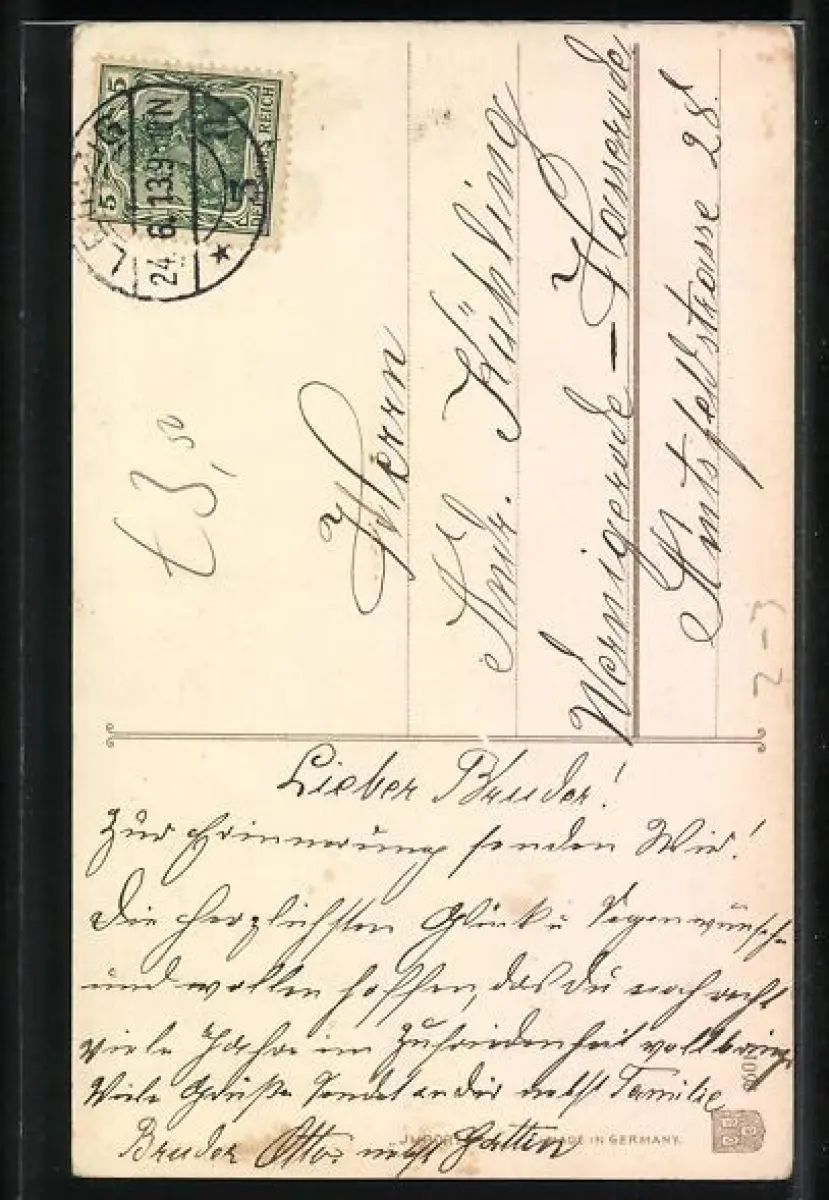 5 5
5
REICH
LEIPZIG
24.6.13.9-10N
*
€ 3,50
Herrn
Andr. Kühling
Wernigerode – Hasserode
Amtsfeldstrasse 28
2-3
Lieber Bruder!
Zur Erinnerung senden Wir!
Die herzlichsten Glück u Segenwünsche
und wollen hoffen, das Du noch recht
viele Jahre im Zufriedenheit vollbringst
Viele Grüße sendet an dir nebst Familie
Bruder Otto nebst Gattin
MADE IN GERMANY.